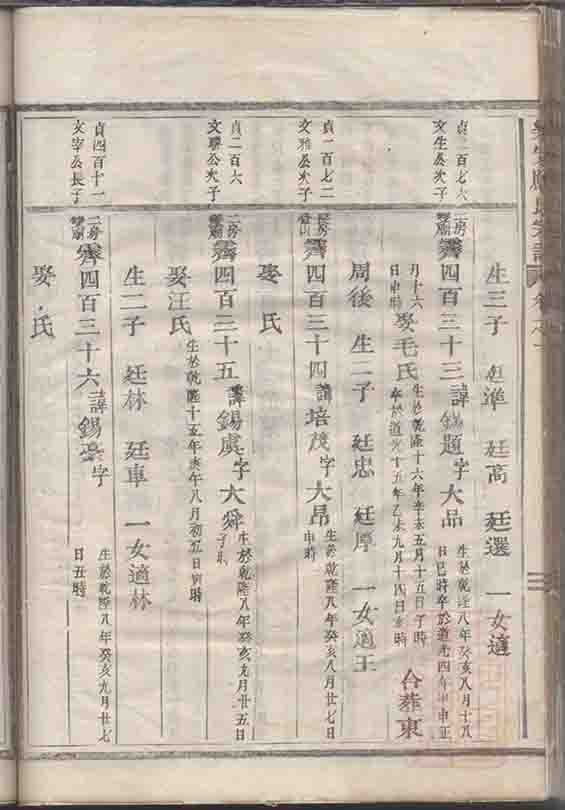 生三子 廷準 廷高 廷選 一女適
貞二百七六
文生公次子
二房
霽四百三十三 諱錫題 字大品 生於乾隆八年癸亥八月十八
日巳時卒於道光四年甲申正
月十六
日申時
娶毛氏 生於乾隆十六年辛未五月十五日子時
卒於道光十五年乙未九月十四日亥時
合葬東
周後 生二子 廷忠 廷厚 一女適王
貞一百七二
文雅公次子
霽四百三十四 諱培茂 字大昂 生於乾隆八年癸亥八月廿七日
申時
娶 氏
貞二百六
文聯公次子
二房
霽四百三十五 諱錫虞 字大舜 生於乾隆八年癸亥九月廿五日
子時
娶汪氏 生於乾隆十五年庚午八月初五日寅時
生二子 廷林 廷車 一女適林
貞四百十一
文宰公長子
二房
霽四百三十六 諱錫 字 生於乾隆八年癸亥九月廿七
日丑時
娶 氏